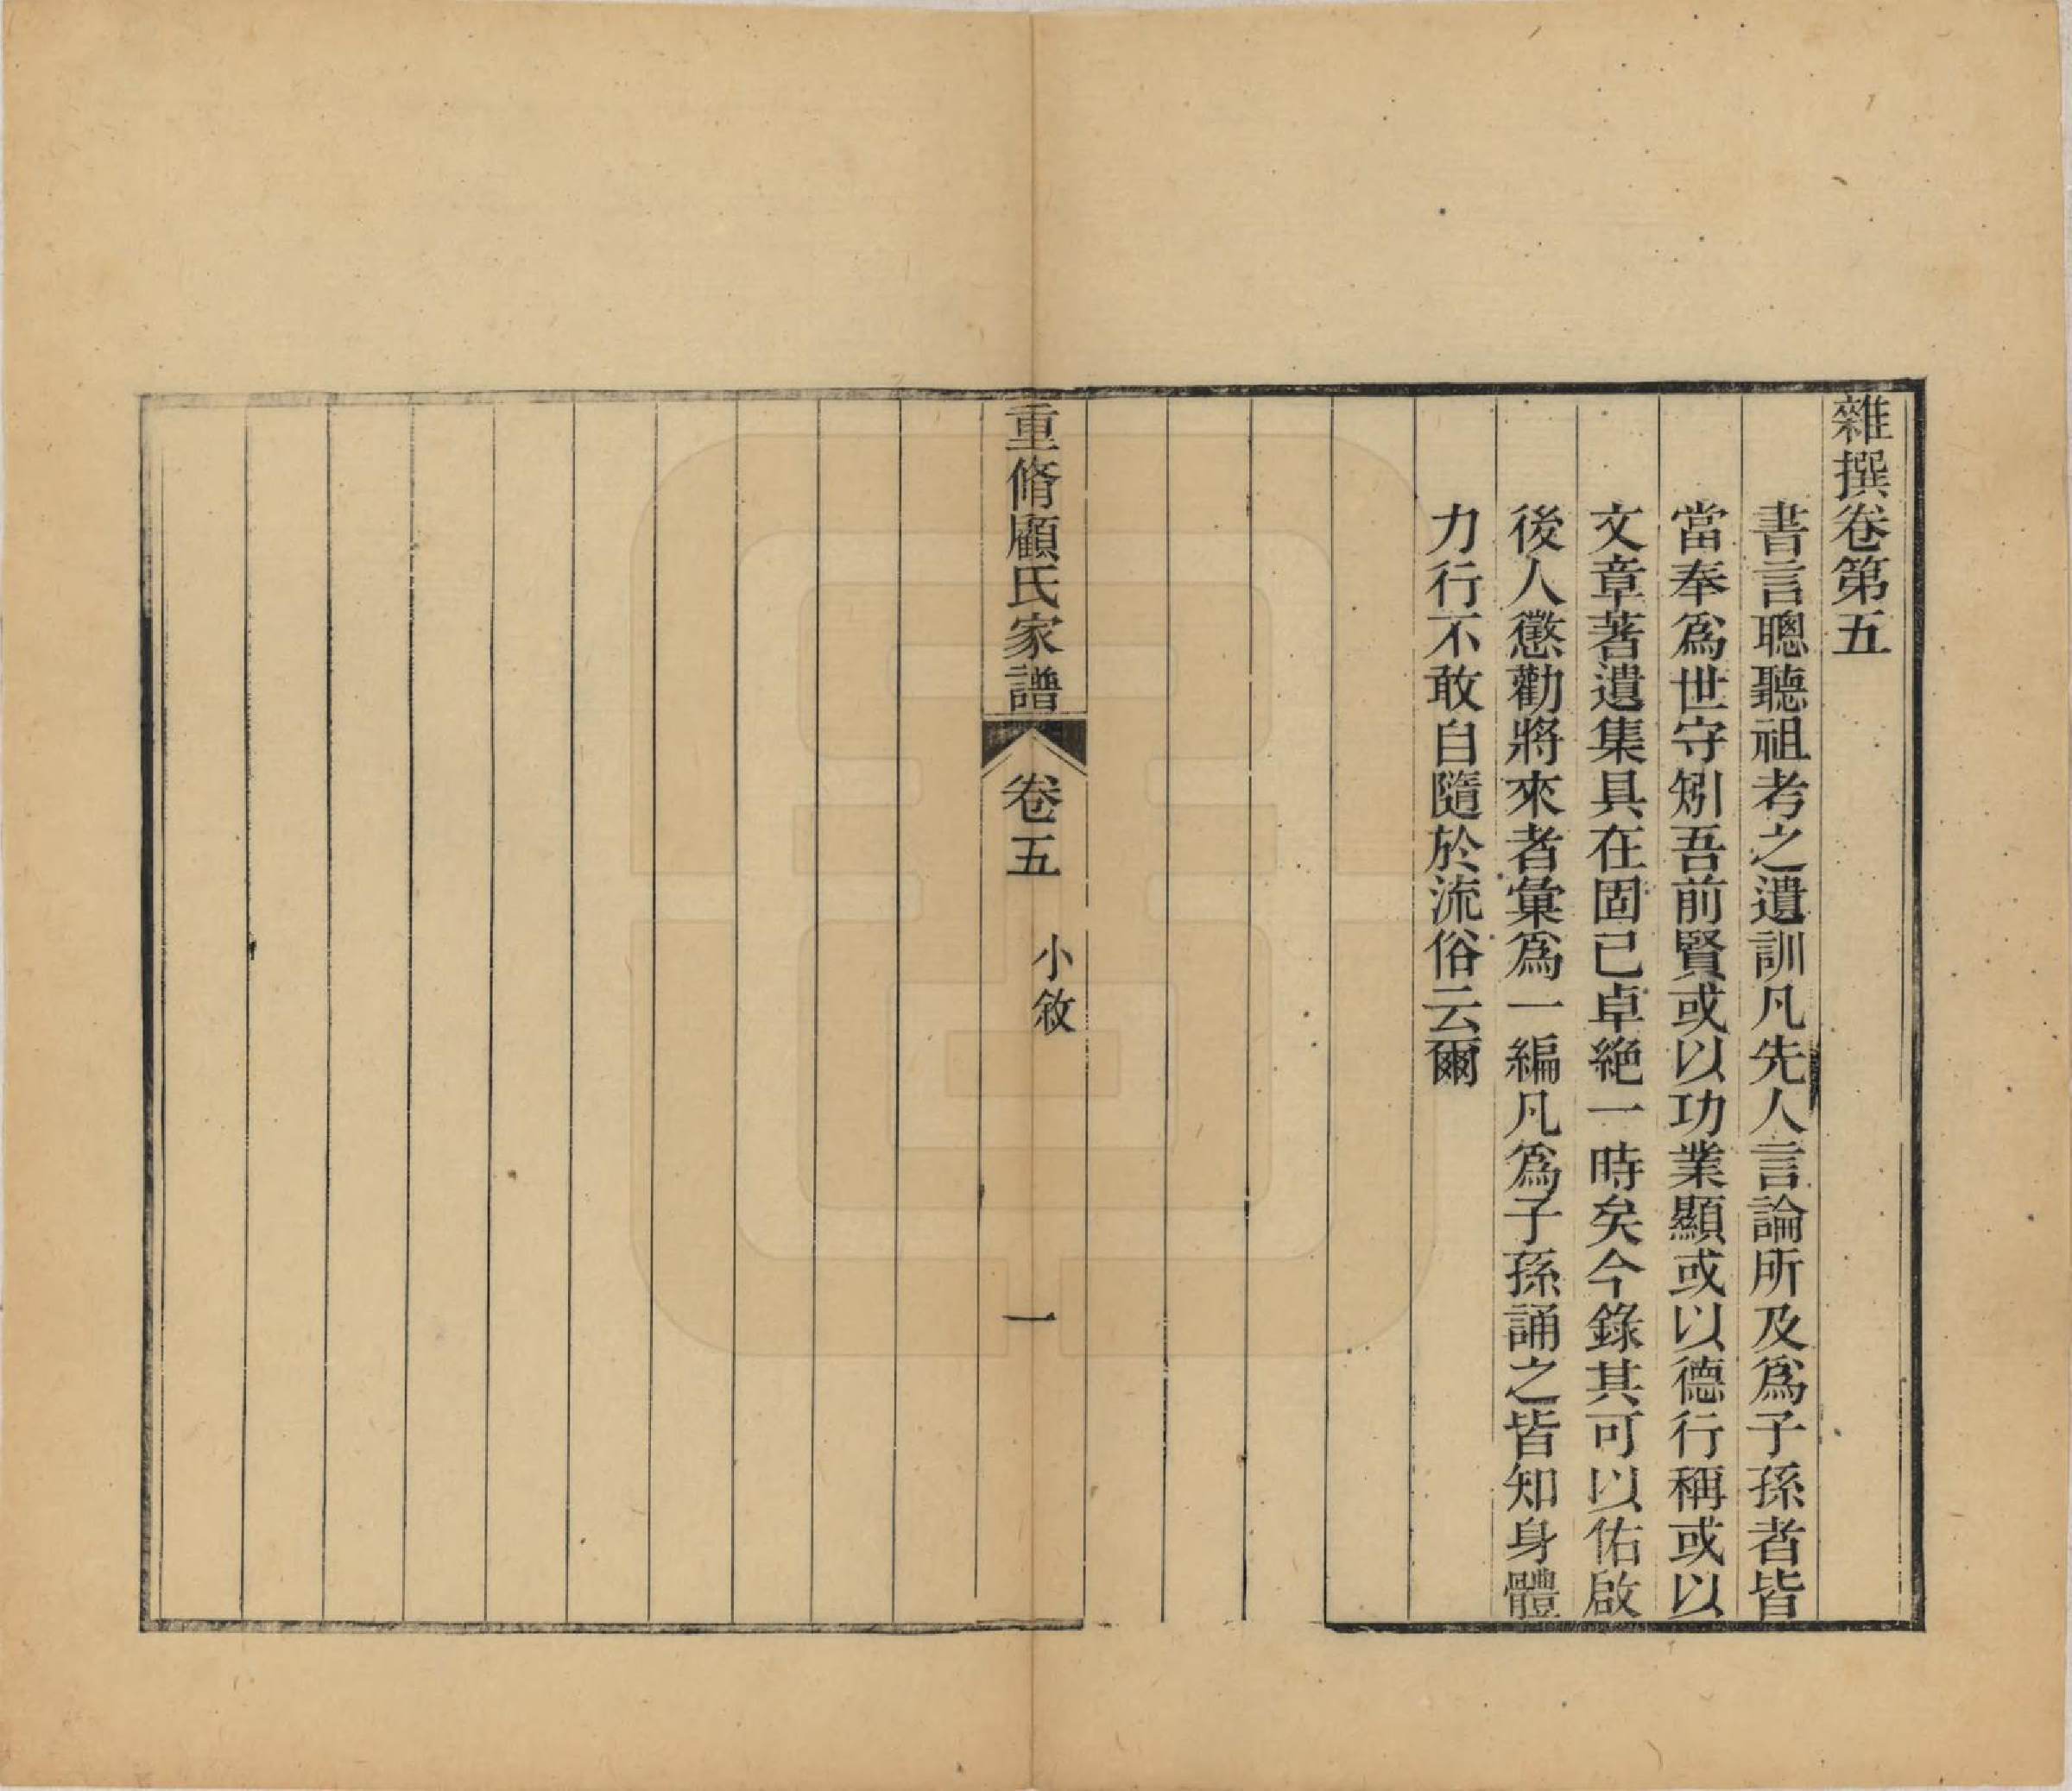 雜撰卷第五
書言聰聽祖考之遺訓凡先人言論所及爲子孫者皆
當奉爲世守矧吾前賢或以功業顯或以德行稱或以
文章著遺集具在固已卓絶一時矣今錄其可以佑啟
後人懲勸將來者彙爲一編凡爲子孫誦之皆知身體
力行不敢自隨於流俗云爾
重脩顧氏家譜
卷五
小敘
一